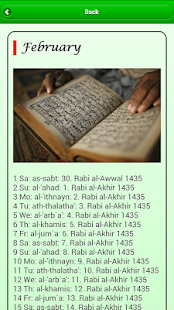 Back
February
1 Sa: as-sabt: 30. Rabi al-Awwal 1435
2 Su: al-'ahad: 1. Rabi al-Akhir 1435
3 Mo: al-'ithnayn: 2. Rabi al-Akhir 1435
4 Tu: ath-thalatha': 3. Rabi al-Akhir 1435
5 We: al-'arb`a': 4. Rabi al-Akhir 1435
6 Th: al-khamis: 5. Rabi al-Akhir 1435
7 Fr: al-jum`a: 6. Rabi al-Akhir 1435
8 Sa: as-sabt: 7. Rabi al-Akhir 1435
9 Su: al-'ahad: 8. Rabi al-Akhir 1435
10 Mo: al-'ithnayn: 9. Rabi al-Akhir 1435
11 Tu: ath-thalatha': 10. Rabi al-Akhir 1435
12 We: al-'arb`a': 11. Rabi al-Akhir 1435
13 Th: al-khamis: 12. Rabi al-Akhir 1435
14 Fr: al-jum`a: 13. Rabi al-Akhir 1435
15 Sa: as-sabt: 14. Rabi al-Akhir 1435